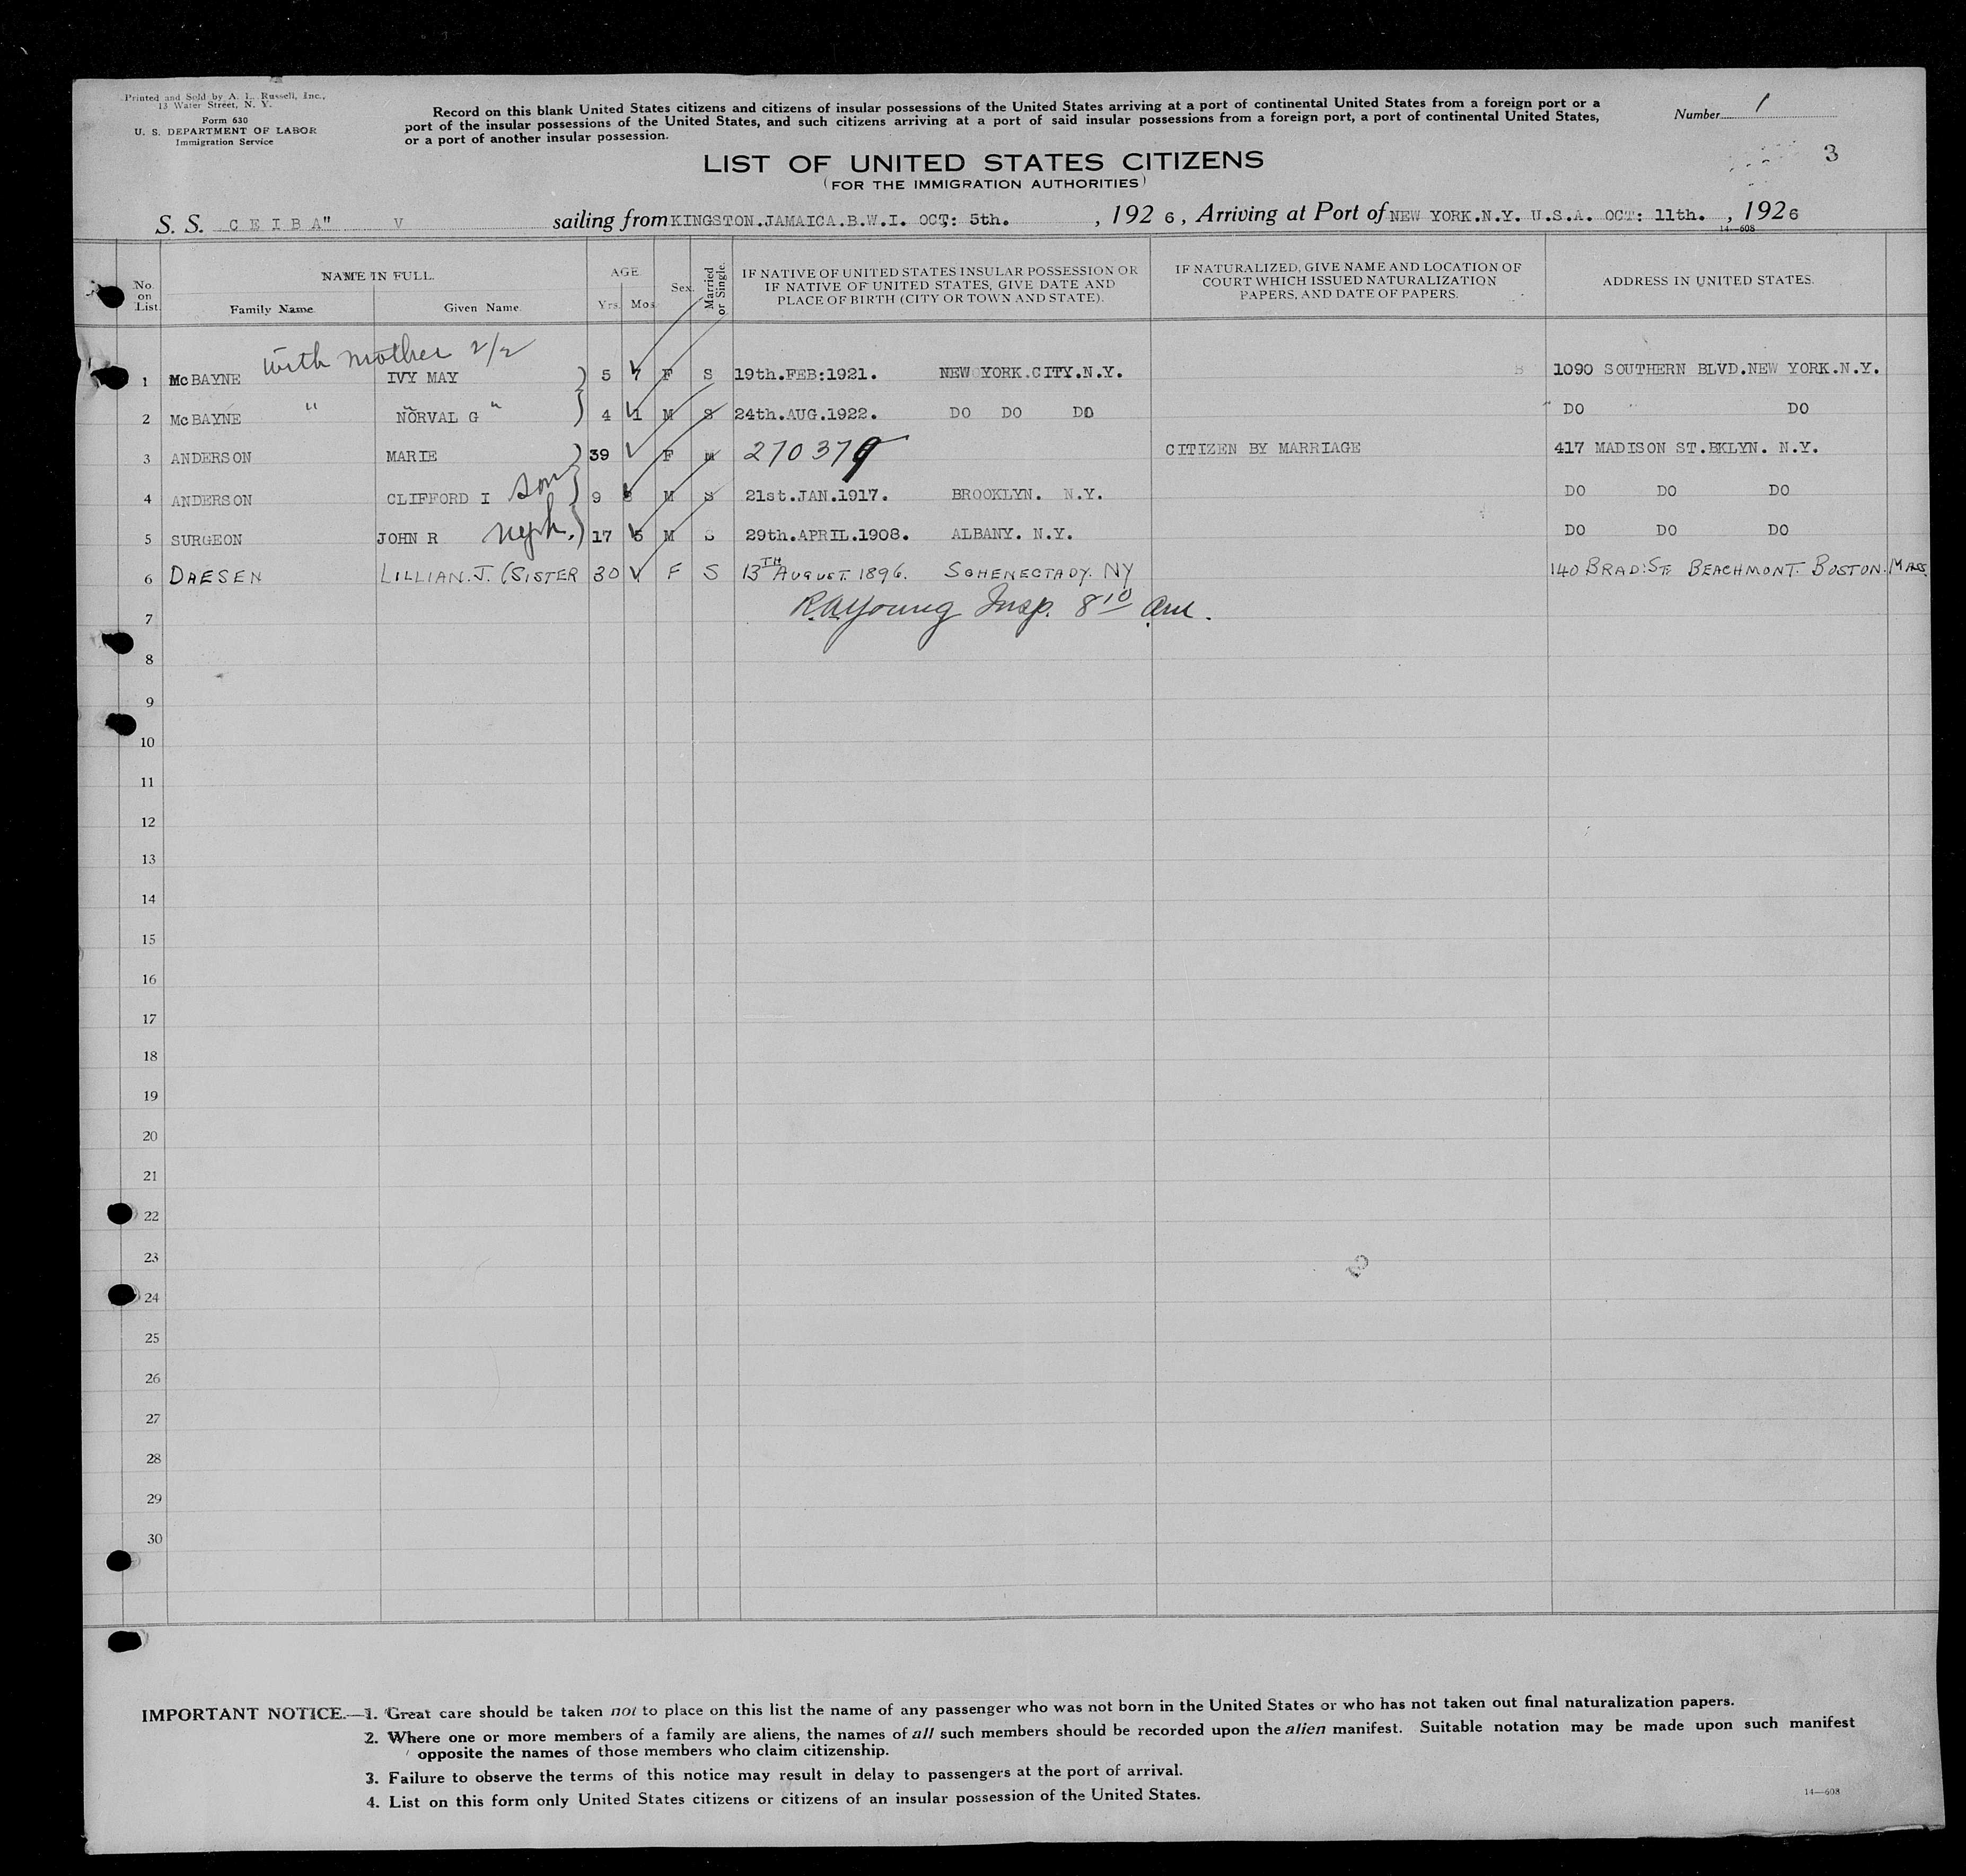 Printed and Sold by A. L. Russell, Inc.,
13 Water Street, N. Y.
Form 630
U. S. DEPARTMENT OF LABOR
Immigration Service
Record on this blank United States citizens and citizens of insular possessions of the United States arriving at a port of continental United States from a foreign port or a
port of the insular possessions of the United States, and such citizens arriving at a port of said insular possessions from a foreign port, a port of continental United States,
or a port of another insular possession.
Number 1
3
LIST OF UNITED STATES CITIZENS
(FOR THE IMMIGRATION AUTHORITIES)
S. S. C E I B A" V sailing from KINGSTON.JAMAICA.B.W.I. OCT: 5th. , 192 6 , Arriving at Port of NEW YORK.N.Y. U.S.A. OCT: 11th. , 1926
14—608
No. on List. NAME IN FULL. Family Name. Given Name. AGE. Yrs. Mos. Sex. Married or Single. IF NATIVE OF UNITED STATES INSULAR POSSESSION OR IF NATIVE OF UNITED STATES, GIVE DATE AND PLACE OF BIRTH (CITY OR TOWN AND STATE). IF NATURALIZED, GIVE NAME AND LOCATION OF COURT WHICH ISSUED NATURALIZATION PAPERS, AND DATE OF PAPERS. ADDRESS IN UNITED STATES.
with mother 2/2
1 McBAYNE IVY MAY 5 7 F S 19th.FEB:1921. NEW YORK.CITY.N.Y. 1090 SOUTHERN BLVD.NEW YORK.N.Y.
2 McBAYNE " NORVAL G " 4 1 M S 24th.AUG.1922. DO DO DO DO DO
3 ANDERSON MARIE 39 F M 270379 CITIZEN BY MARRIAGE 417 MADISON ST.BKLYN. N.Y.
4 ANDERSON CLIFFORD I son 9 8 M S 21st.JAN.1917. BROOKLYN. N.Y. DO DO DO
5 SURGEON JOHN R neph. 17 5 M S 29th.APRIL.1908. ALBANY. N.Y. DO DO DO
6 DAESEN LILLIAN. J. (SISTER 30 F S 13TH AUGUST. 1896. SCHENECTADY. NY 140 BRAD: ST. BEACHMONT. BOSTON. MASS.
R.A.Young Insp. 8 10 am.
7
8
9
10
11
12
13
14
15
16
17
18
19
20
21
22
23
24
25
26
27
28
29
30
IMPORTANT NOTICE.—1. Great care should be taken not to place on this list the name of any passenger who was not born in the United States or who has not taken out final naturalization papers.
2. Where one or more members of a family are aliens, the names of all such members should be recorded upon the alien manifest. Suitable notation may be made upon such manifest
opposite the names of those members who claim citizenship.
3. Failure to observe the terms of this notice may result in delay to passengers at the port of arrival.
4. List on this form only United States citizens or citizens of an insular possession of the United States.
14—608